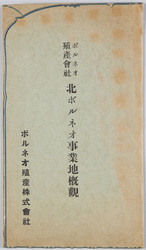 ボルネオ
殖產會社
北ボルネオ事業地概觀
ボルネオ殖產株式會社